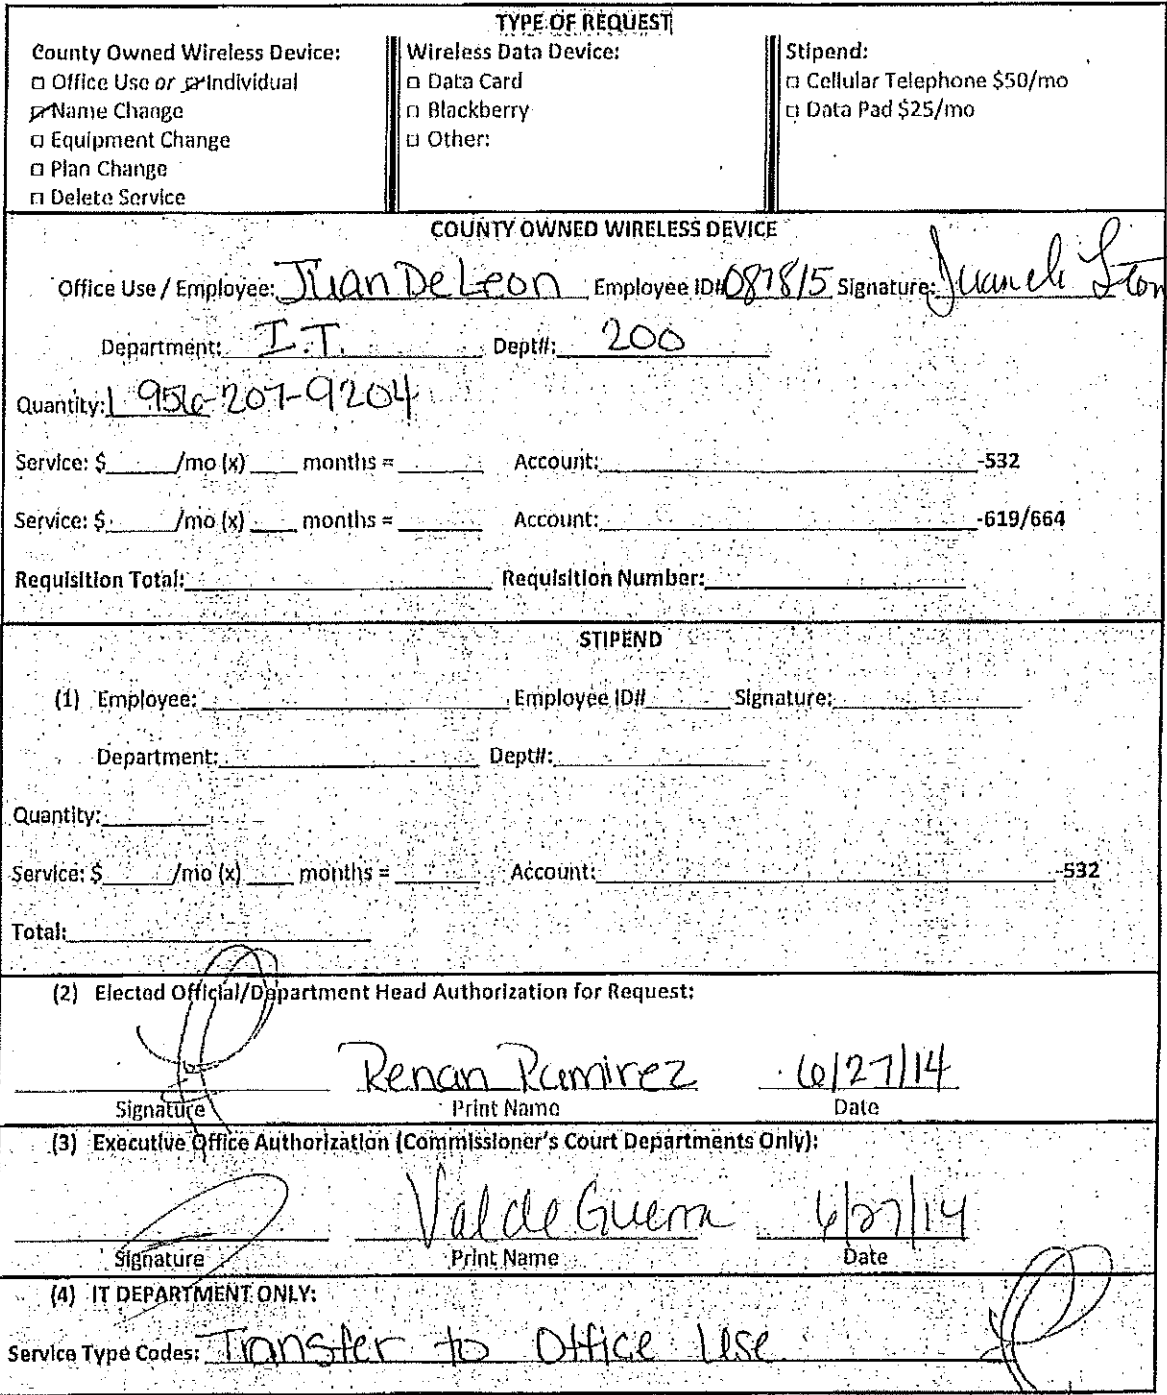 TYPE OF REQUEST
County Owned Wireless Device:
□ Office Use or ☑ Individual
☑ Name Change
□ Equipment Change
□ Plan Change
□ Delete Service
Wireless Data Device:
□ Data Card
□ Blackberry
□ Other:
Stipend:
□ Cellular Telephone $50/mo
□ Data Pad $25/mo
COUNTY OWNED WIRELESS DEVICE
Office Use / Employee: Juan De Leon Employee ID# 087815 Signature: Juan de Leon
Department: I.T. Dept#: 200
Quantity: 1 956-207-9204
Service: $______/mo (x) ____ months = ______ Account: ______-532
Service: $______/mo (x) ____ months = ______ Account: ______-619/664
Requisition Total: ______ Requisition Number: ______
STIPEND
(1) Employee: ______ Employee ID# ______ Signature: ______
Department: ______ Dept#: ______
Quantity: ______
Service: $______/mo (x) ____ months = ______ Account: ______-532
Total: ______
(2) Elected Official/Department Head Authorization for Request:
Renan Ramirez 6/27/14
Signature Print Name Date
(3) Executive Office Authorization (Commissioner's Court Departments Only):
Valde Guerra 6/27/14
Signature Print Name Date
(4) IT DEPARTMENT ONLY:
Service Type Codes: Transfer to Office Use